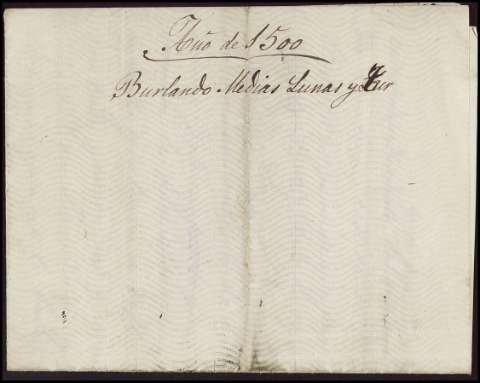 Año de 1500
Burlando Medias Lunas y